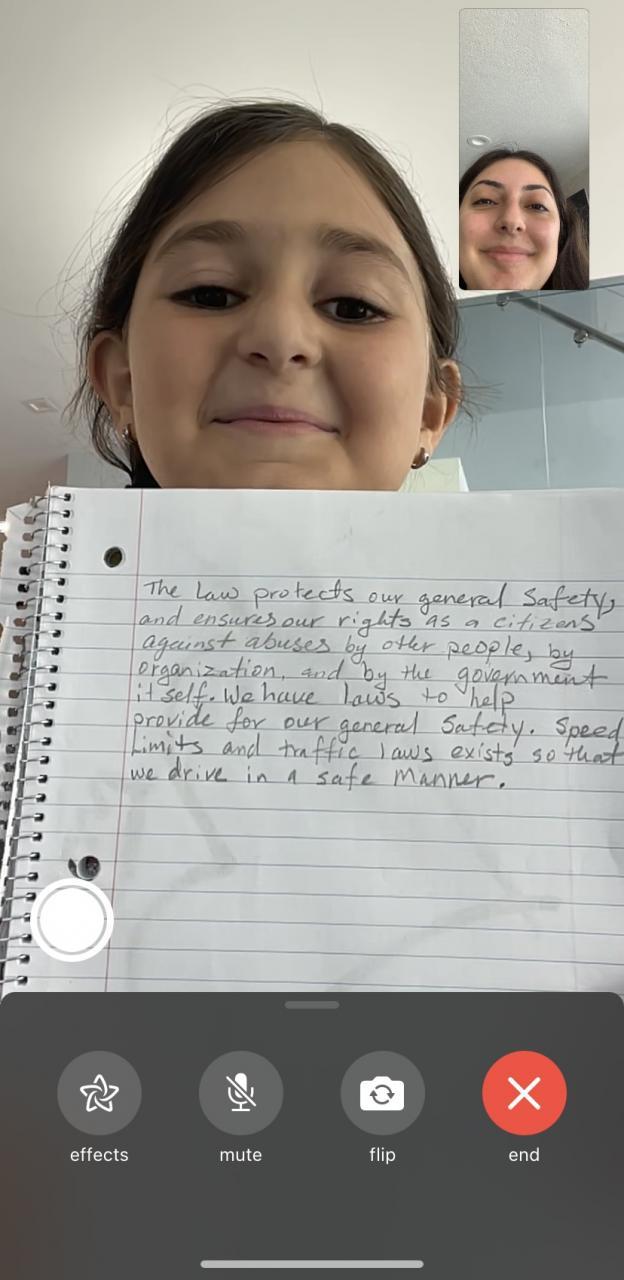 The Law protects our general Safety,
and ensures our rights as a citizens
against abuses by other people, by
organization, and by the government
itself. We have laws to help
provide for our general Safety. Speed
Limits and traffic laws exists so that
we drive in a safe manner.
effects mute flip end